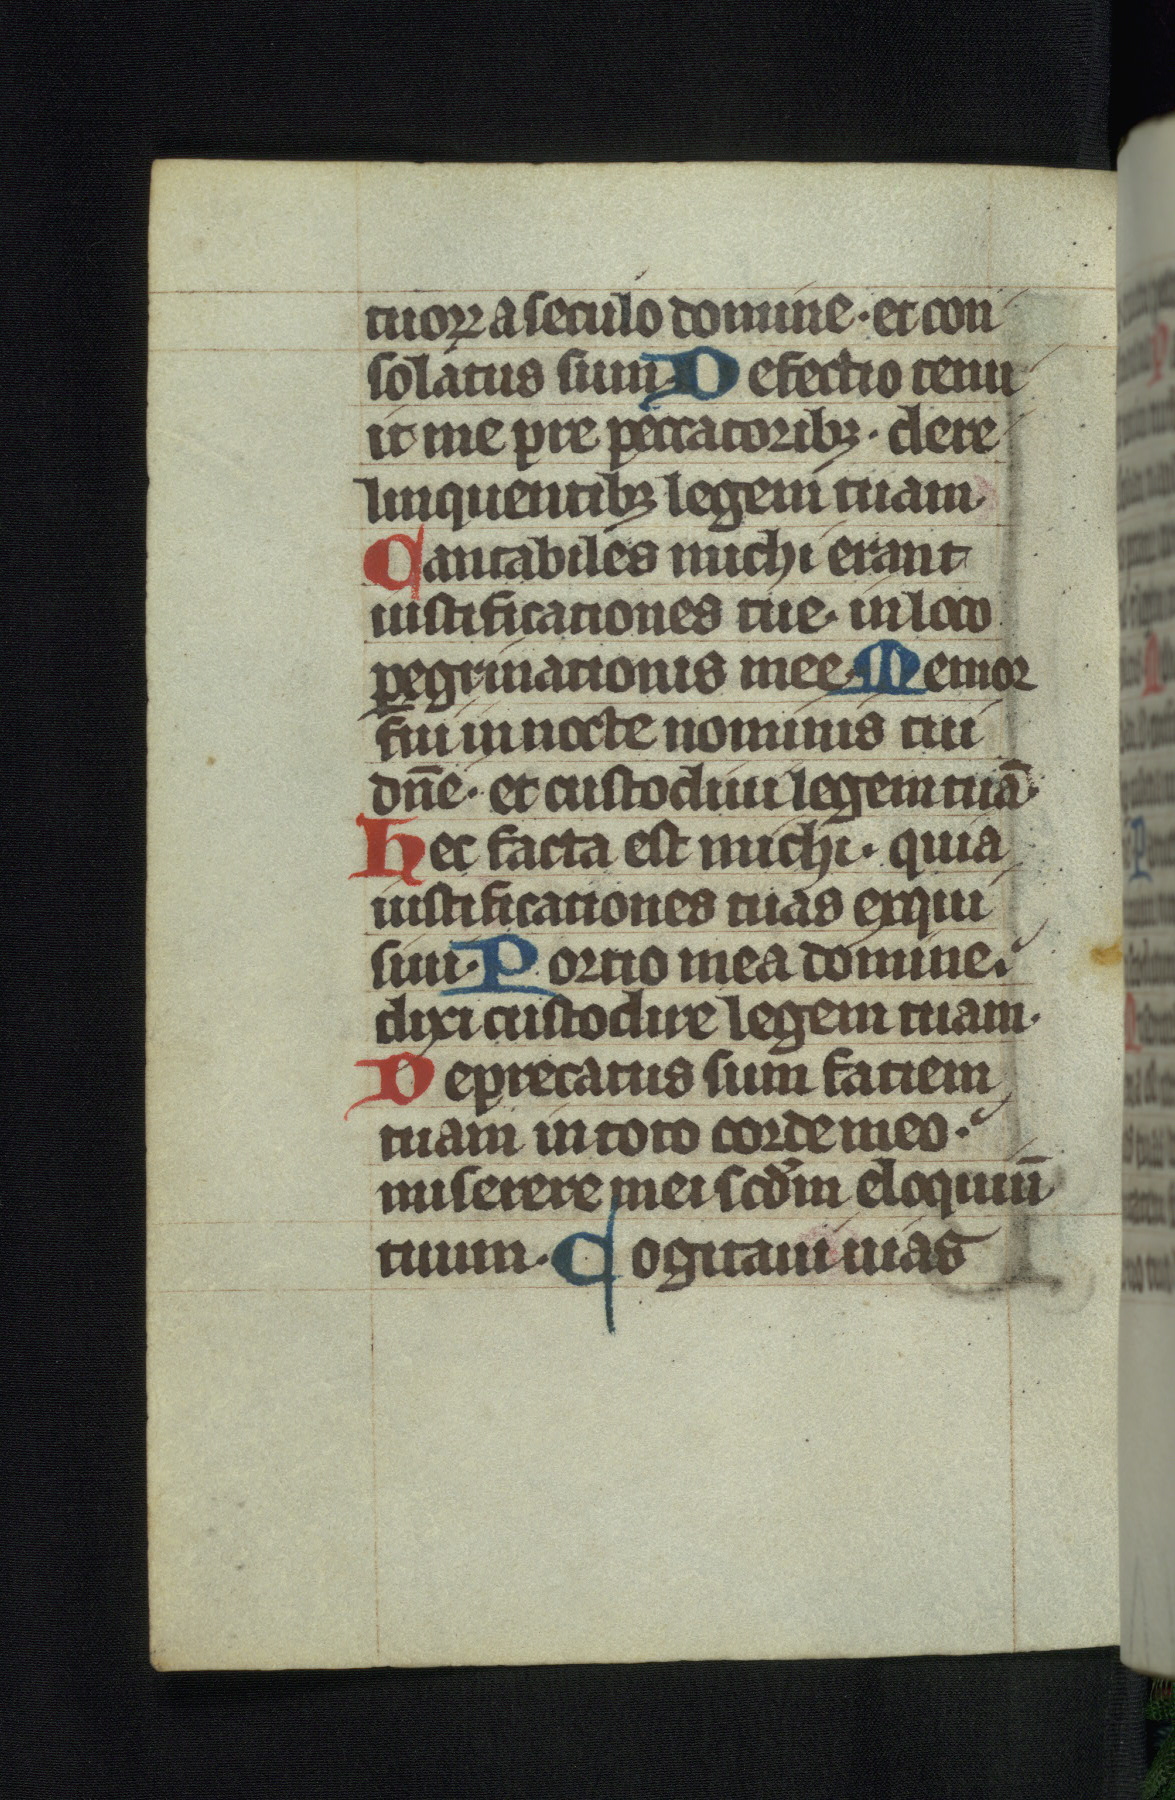 tuoꝝ a seculo domine · et con
solatus sum · Defectio tenu
it me pre peccatoribꝫ · dere
linquentibꝫ legem tuam
Cantabiles michi erant
iustificationes tue · in loco
ꝑegrinationis mee · Memor
fui in nocte nominis tui
dn̄e · et custodiui legem tuā ·
Hec facta est michi · quia
iustificationes tuas exqui
siui · Portio mea domine ·
dixi custodire legem tuam ·
Deprecatus sum faciem
tuam in toto corde meo ·
miserere mei scd̓m eloquiū
tuum · Cogitaui uias